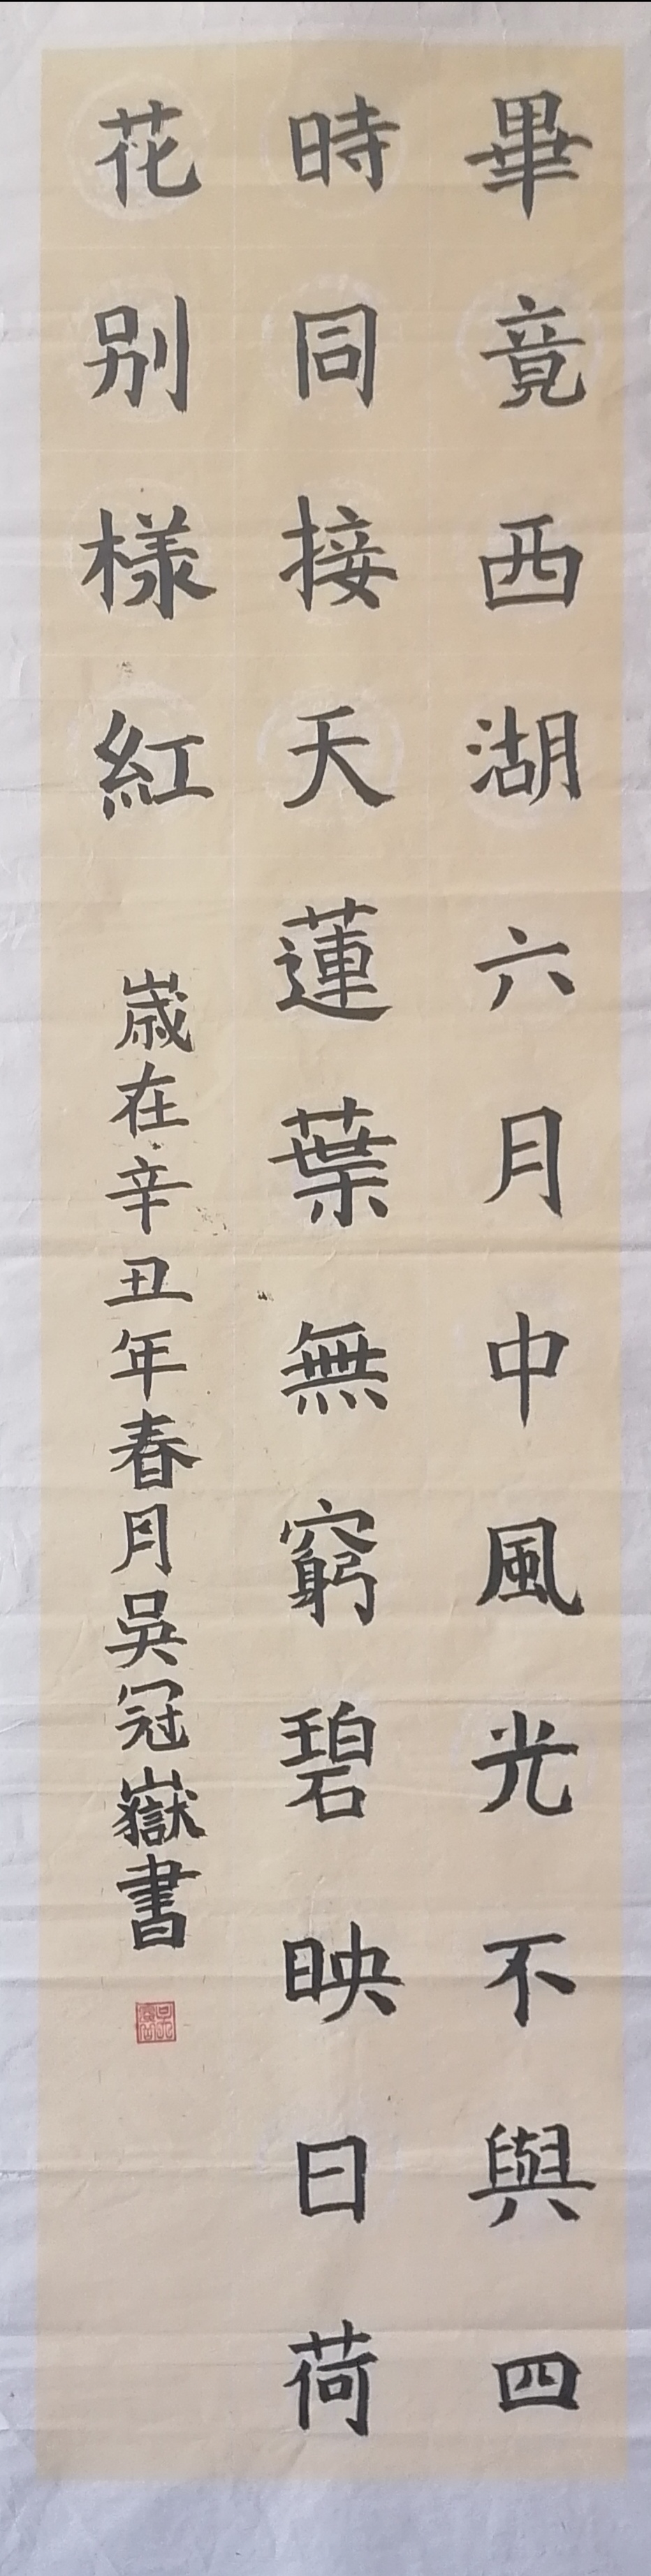 畢竟西湖六月中風光不與四
時同接天蓮葉無窮碧映日荷
花别樣紅
歲在辛丑年春月吳冠嶽書